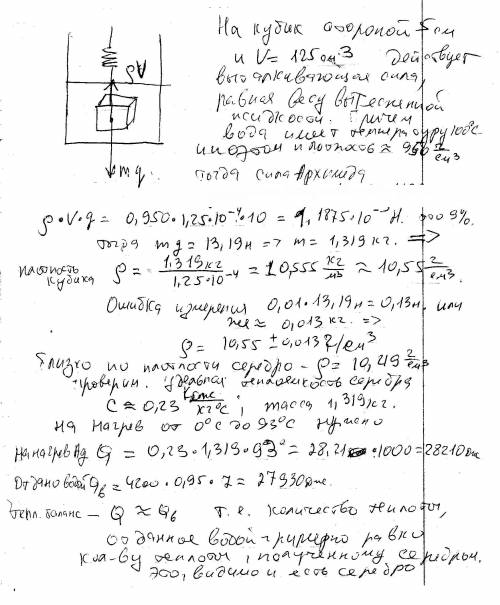 На кубик стороной 5 см
и V = 125 см³ действует
выталкивающая сила,
равная весу вытесненной
жидкости. Причем
вода имеет температуру 100°C
и плотность ≈ 950 г/см³
тогда сила Архимеда
mg
ρ·V·g = 0,950·1,25·10⁻⁴·10 = 1,1875·10⁻³ Н. 9%.
тогда mg = 13,19н => m = 1,319 кг. =>
плотность кубика ρ = 1,319кг / 1,25·10⁻⁴ = 10,555 кг/м³ ≈ 10,55 г/см³.
Ошибка измерения 0,01·13,19н = 0,13н. или
же ≈ 0,013 кг. =>
ρ = 10,55 ± 0,013 г/см³
Близко по плотности серебро - ρ = 10,49 г/см³
проверим. Удельная теплоемкость серебра
C ≈ 0,23 кДж/кг°C ; масса 1,319 кг.
На нагрев от 0°C до 93°C нужно
На нагрев Ag Q = 0,23·1,319·93° = 28,21·1000 = 28210 Дж
Отдано водой Qб = 4200·0,95·7 = 27930 Дж.
Тепл. баланс - Q ≈ Qб т.е. количество теплоты,
отданное водой примерно равно
кол-ву теплоты, полученному серебром.
Это, видимо и есть серебро